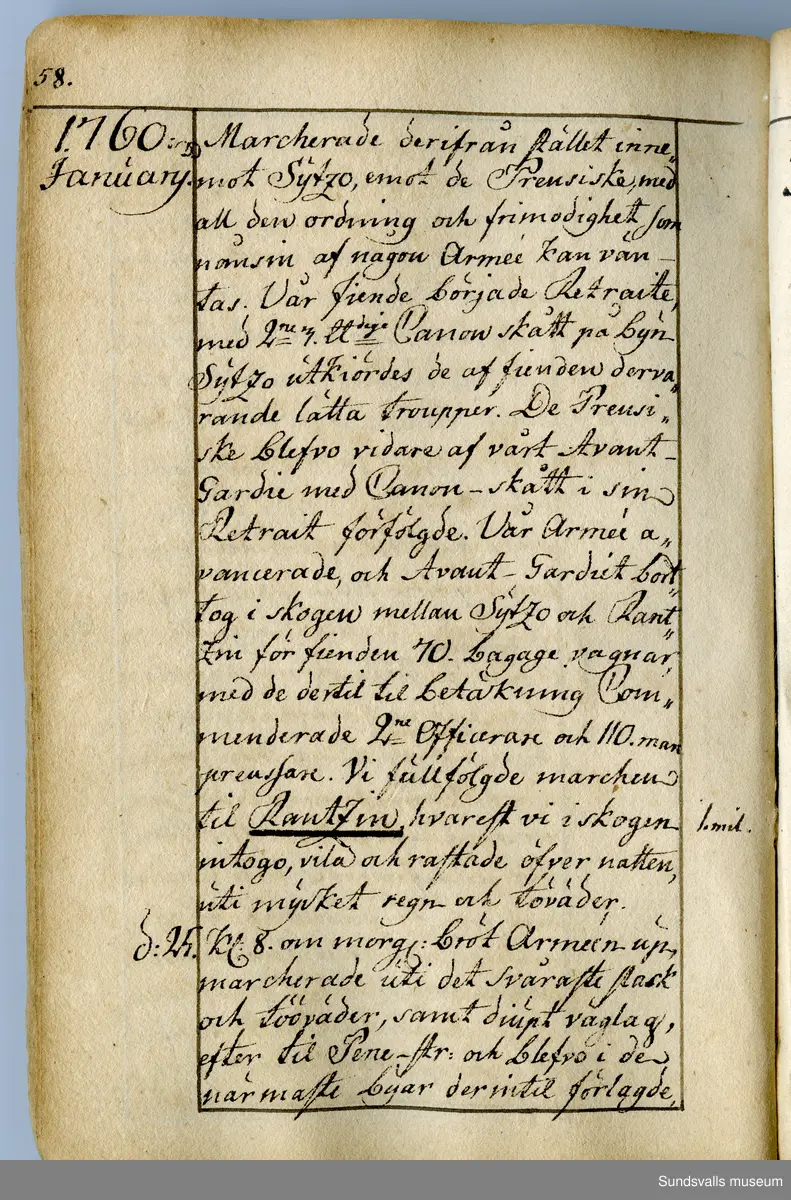 58.
1760:
January.
Marcherade derifrån stället inne„
mot Sytzo, emot de Preusiske, med
all den ordning och frimodighet som
nånsin af någon Armée kan vän-
tas. Vår fiende började Retraite,
med 2ne 3. ttdige Canon skått på byn
Sytzo utkiördes de af fienden derva„
rande lätta troupper. De Preusi„
ske blefvo vidare af vårt Avant-
Gardie med Canon-skått i sin
Retrait förfölgde. Vår Armée a„
vancerade, och Avant-Gardiet bort„
tog i skogen mellan Sytzo och Rant„
zin för fienden 70. bagage vagnar,
med de dertil til betäkning Com„
menderade 2ne Officerare och 110. man
preussare. Vi fullfölgde marchen
til Rantzin, hvarest vi i skogen
1. mil.
intogo, vila och rastade öfver natten,
uti mycket regn och töväder.
d: 25.
Kl: 8. om morg: bröt Armeén up,
marcherade uti det svåraste slack
och tööväder, samt diupt väglag,
efter til Pene-str: och blefvo i de
närmaste byar derintil förlagde,
Sundsvalls museum